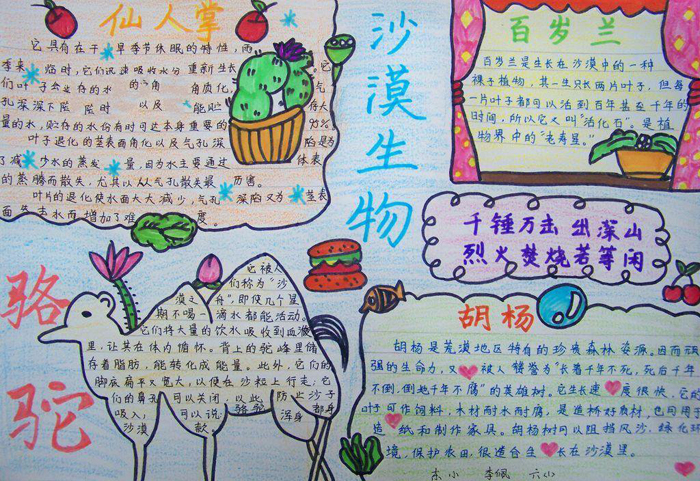 仙人掌
它具有在干旱季节休眠的特性，雨
季来临时，它们迅速吸收水分重新生长
量的水，贮存的水份有时可达本身重要的90%。
叶子退化的茎表面角化以及气孔深陷是为
了减少水的蒸发量，因为水主要通过体表
的蒸腾而散失，尤其以从气孔散失最厉害。
叶片的退化使水面大大减少，气孔深陷又为茎表
面失去水而增加了难度。
沙漠生物
百岁兰
百岁兰是生长在沙漠中的一种
裸子植物，其一生只长两片叶子，但每
一片叶子都可以活到百年甚至千年的
时间，所以它又叫“活化石”。是植
物界中的“老寿星。”
千锤万击出深山
烈火焚烧若等闲
骆驼
它被人
们称为“沙
漠之舟”，即使几个星
期不喝一滴水都能活动。
它们将大量的饮水吸收到血液
里，让其在体内循怀。背上的驼峰里储
存着脂肪，能转化成能量。此外，它们的
脚底扁平又宽大，以便在沙粒上行走；它
们的鼻孔可以关闭，以此防止沙子
吸入，可以说骆驼浑身都身
沙漠软。
胡杨
胡杨是荒漠地区特有的珍贵森林资源。因而顽
强的生命力，又被人誉为“长着千年不死，死后千年
不倒，倒地千年不腐”的英雄树。它生长速度很快，它的
叶子可作饲料，木材耐水耐腐，是造桥好质材，也可用于
造纸和制作家具。胡杨树可以阻挡风沙，绿化环
境，保护农田，很适合生长在沙漠里。
东小 李佩 六小